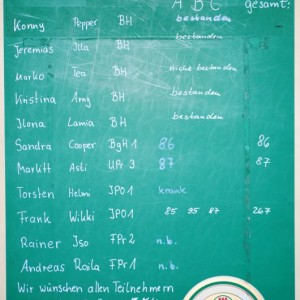 A B C gesamt:
Konny Pepper BH bestanden
Jeremias Illa BH bestanden
Marko Tea BH nicht bestanden
Kristina Amy BH bestanden
Ilona Lamia BH bestanden
Sandra Cooper BgH 1 86 86
Maritt Asti UPr 3 87 87
Torsten Helmi IPO1 krank
Frank Wikki IPO1 85 95 87 267
Rainer Iso FPr2 n.b.
Andreas Raila FPr1 n.b.
Wir wünschen allen Teilnehmern